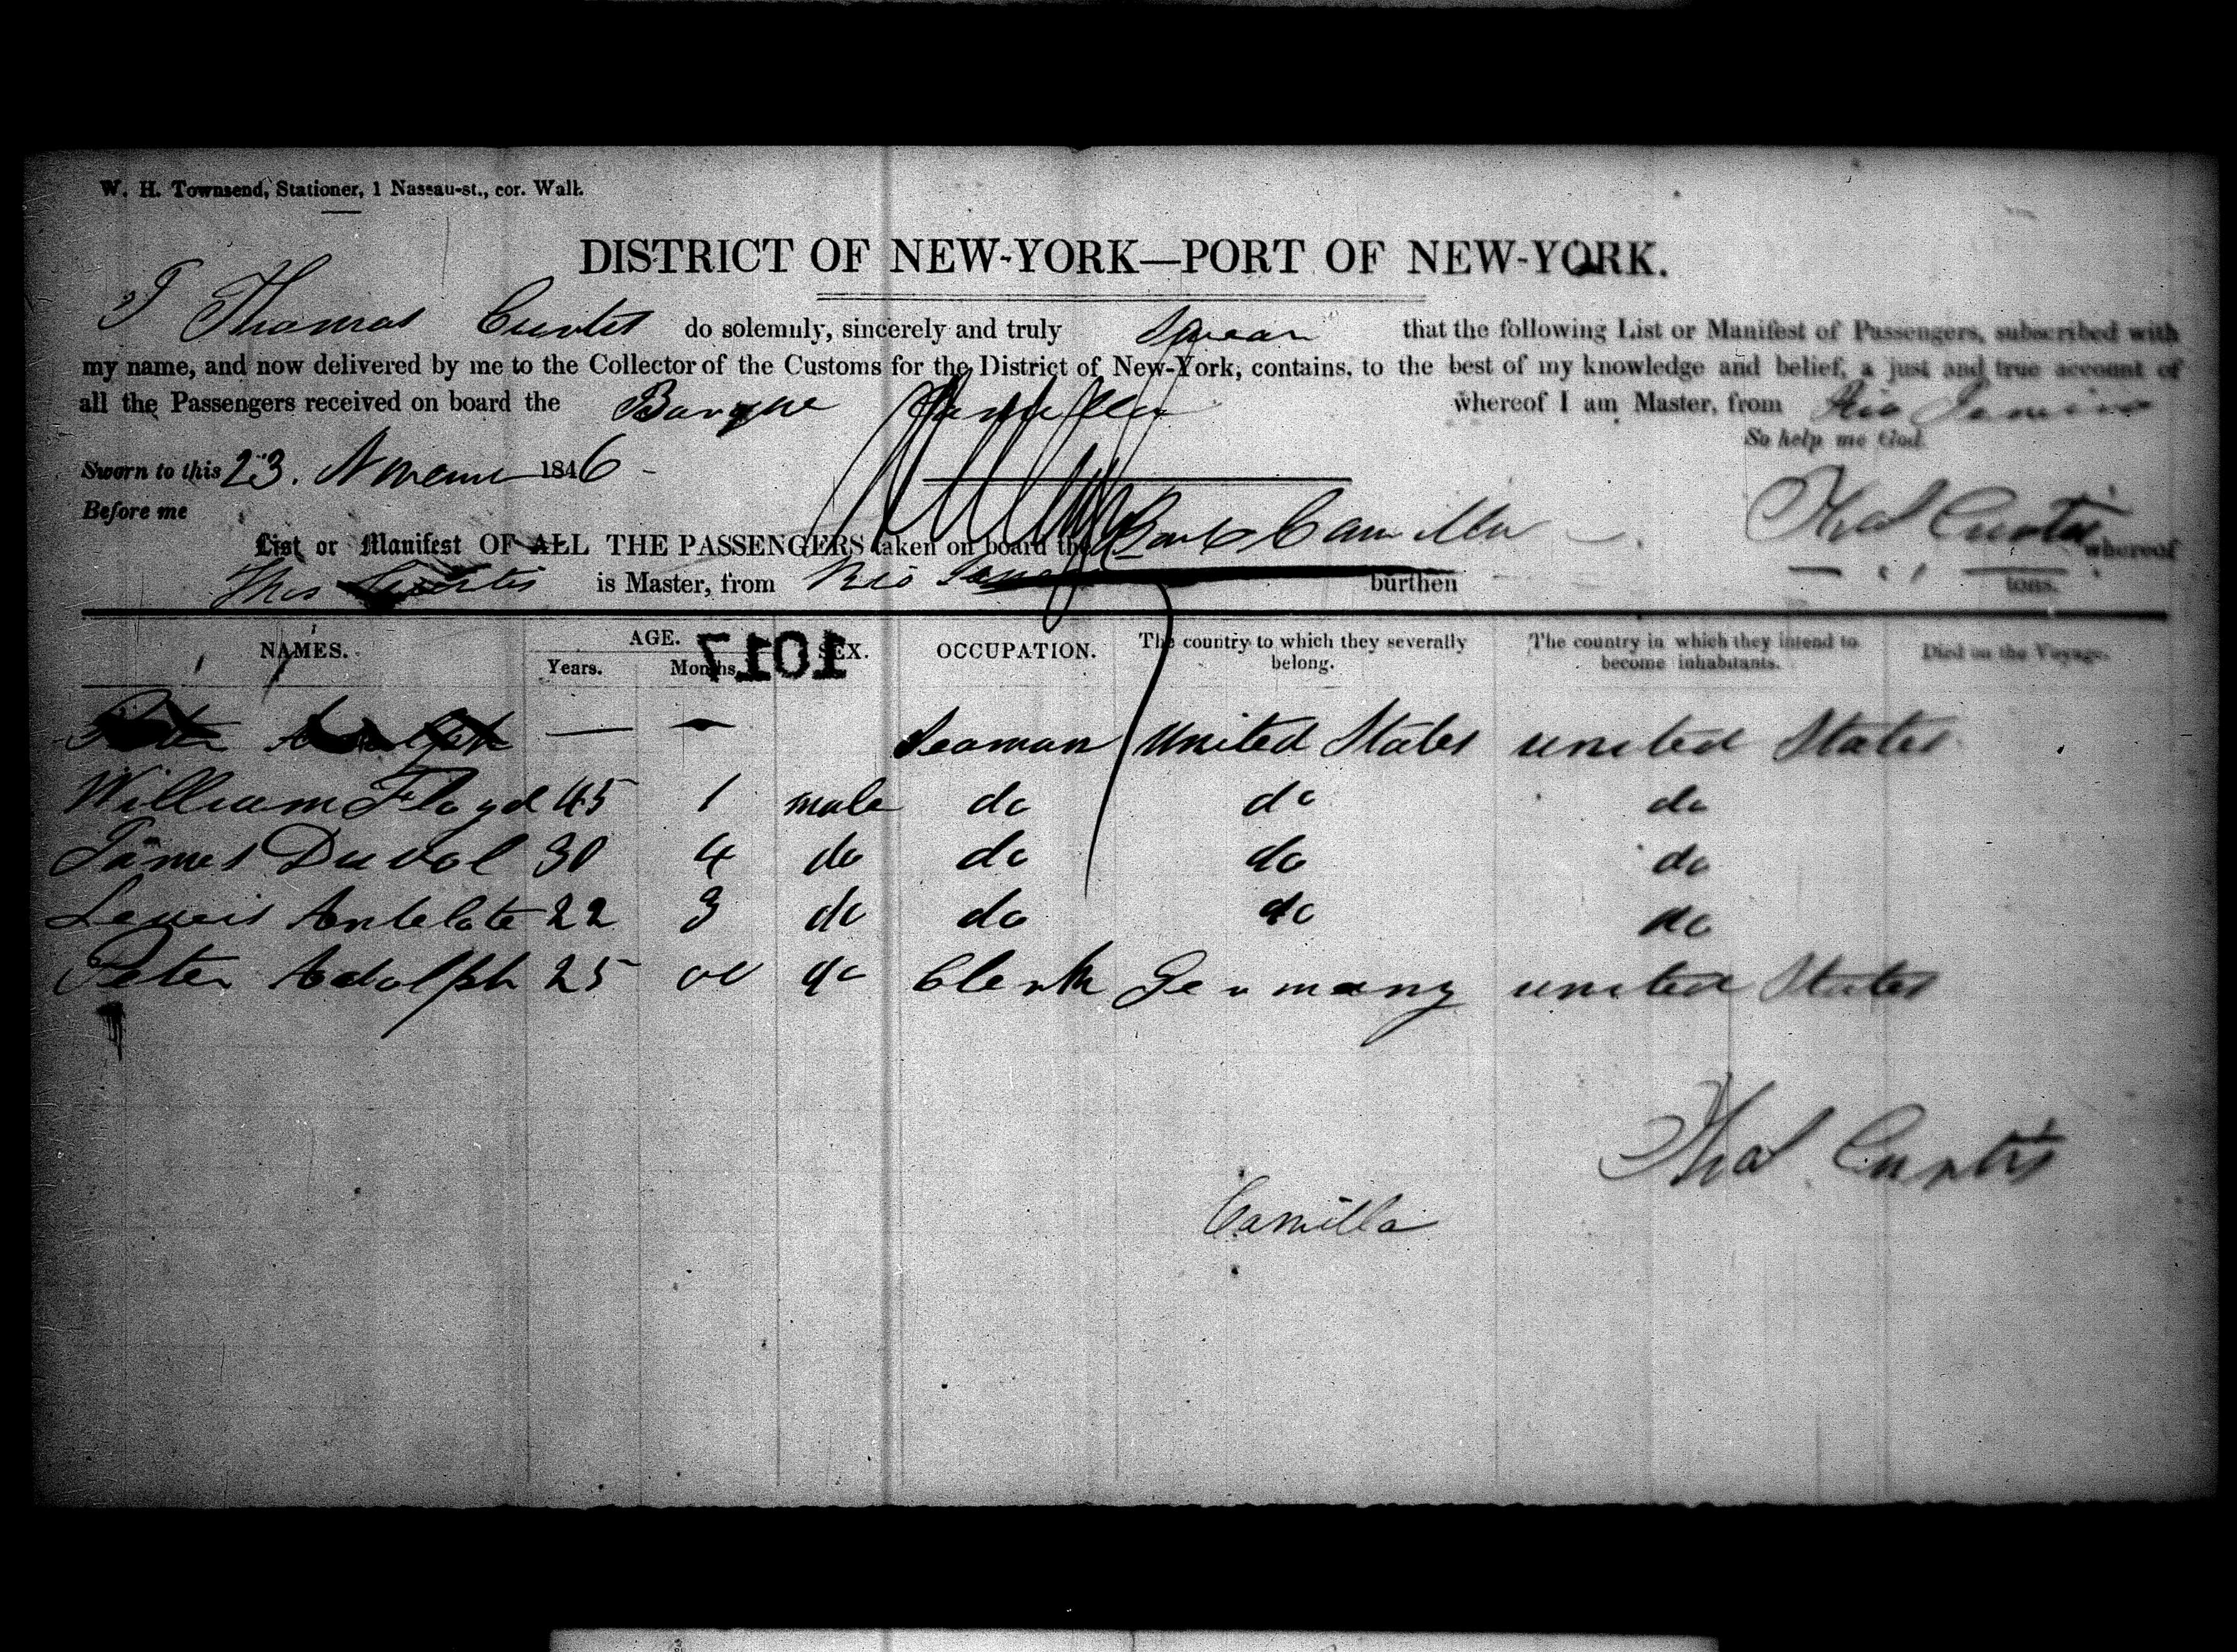 W. H. Townsend, Stationer, 1 Nassau-st., cor. Wall.
DISTRICT OF NEW-YORK—PORT OF NEW-YORK.
I Thomas Curtis do solemnly, sincerely and truly Swear that the following List or Manifest of Passengers, subscribed with
my name, and now delivered by me to the Collector of the Customs for the District of New-York, contains, to the best of my knowledge and belief, a just and true account of
all the Passengers received on board the Barque Camilla whereof I am Master, from Rio Janeiro
So help me God.
Sworn to this 23. 1846
Thos Curtis
Before me
List or Manifest OF ALL THE PASSENGERS taken on board the Bark Camilla whereof
Thos Curtis is Master, from Rio burthen tons.
NAMES. AGE. SEX. OCCUPATION. The country to which they severally belong. The country in which they intend to become inhabitants. Died on the Voyage.
Years. Months.
1017
Peter Adolph — — Seaman United States united States
William Floyd 45 1 male do do do
James Duval 30 4 do do do do
Lewis 22 3 do do do do
Peter Adolph 25 do Clerk Germany united States
Thos Curtis
Camilla